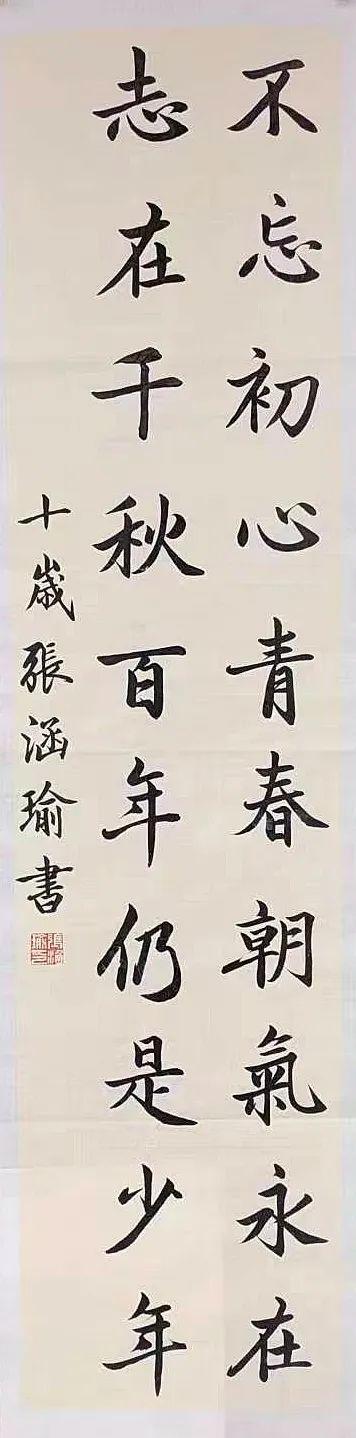 不忘初心青春朝氣永在
志在千秋百年仍是少年
十歲張涵瑜書